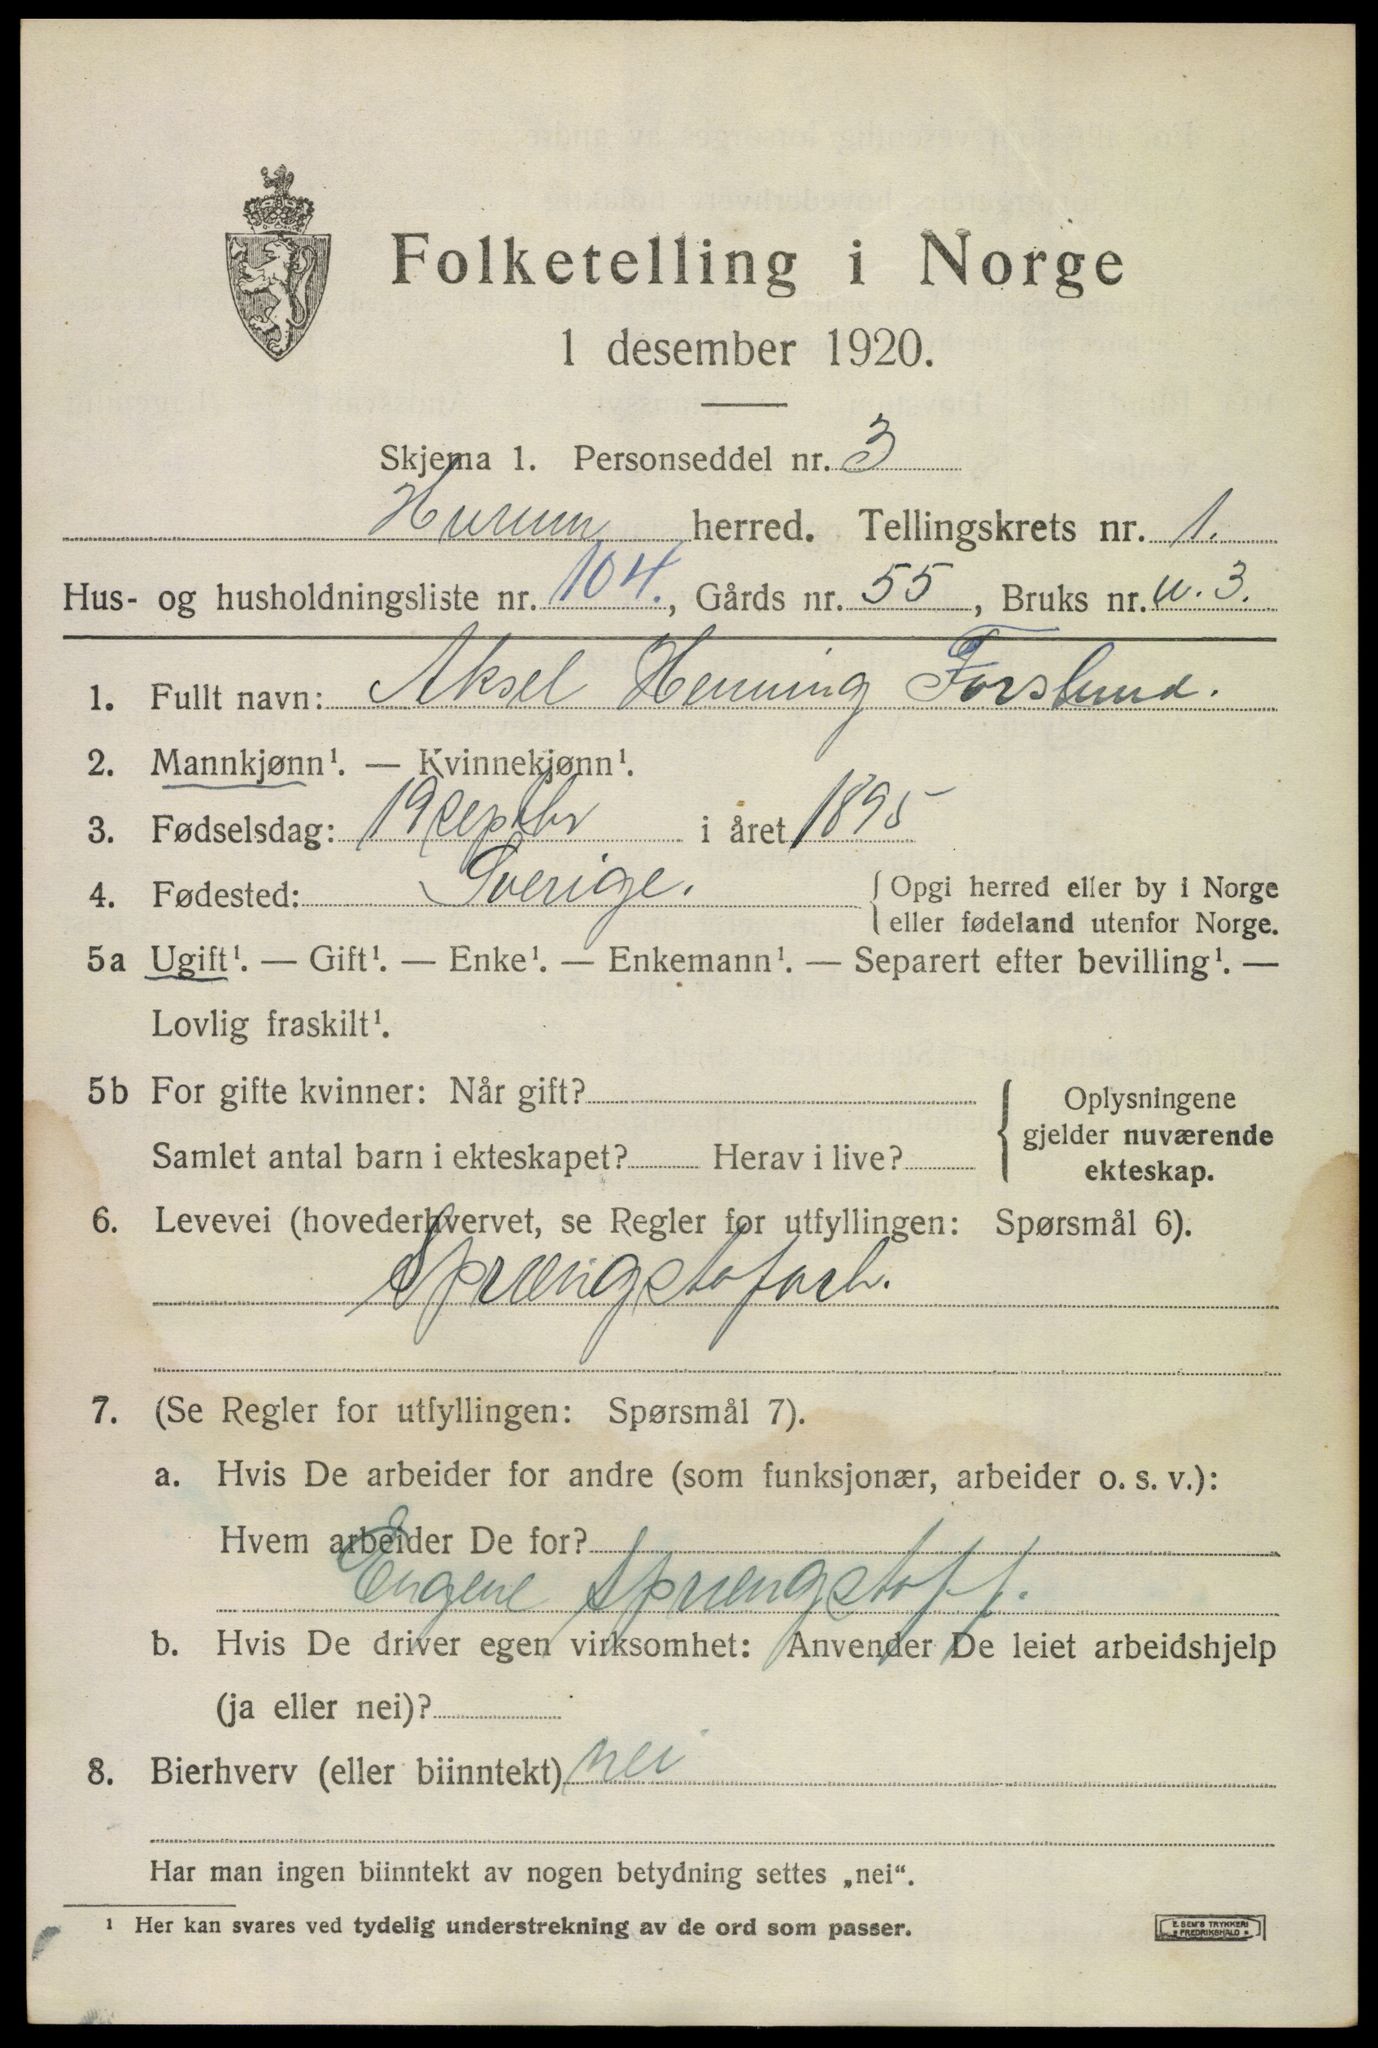 Folketelling i Norge
1 desember 1920.
Skjema 1. Personseddel nr. 3
Hurum herred. Tellingskrets nr. 1.
Hus- og husholdningsliste nr. 104., Gårds nr. 55, Bruks nr. u. 3.
1. Fullt navn: Aksel Henning Forslund.
2. Mannkjønn¹. — Kvinnekjønn¹.
3. Fødselsdag: 19 septbr i året 1895
4. Fødested: Sverige. { Opgi herred eller by i Norge
eller fødeland utenfor Norge.
5a Ugift¹. — Gift¹. — Enke¹. — Enkemann¹. — Separert efter bevilling¹. —
Lovlig fraskilt¹.
5b For gifte kvinner: Når gift?
Samlet antal barn i ekteskapet? Herav i live?
{ Oplysningene
gjelder nuværende
ekteskap.
6. Levevei (hovederhvervet, se Regler for utfyllingen: Spørsmål 6).
Sprængstofarb.
7. (Se Regler for utfyllingen: Spørsmål 7).
a. Hvis De arbeider for andre (som funksjonær, arbeider o. s. v.):
Hvem arbeider De for?
Engene Sprængstoff.
b. Hvis De driver egen virksomhet: Anvender De leiet arbeidshjelp
(ja eller nei)?
8. Bierhverv (eller biinntekt) nei
Har man ingen biinntekt av nogen betydning settes „nei“.
¹ Her kan svares ved tydelig understrekning av de ord som passer.
E. SEM'S TRYKKERI
FREDRIKSHALD